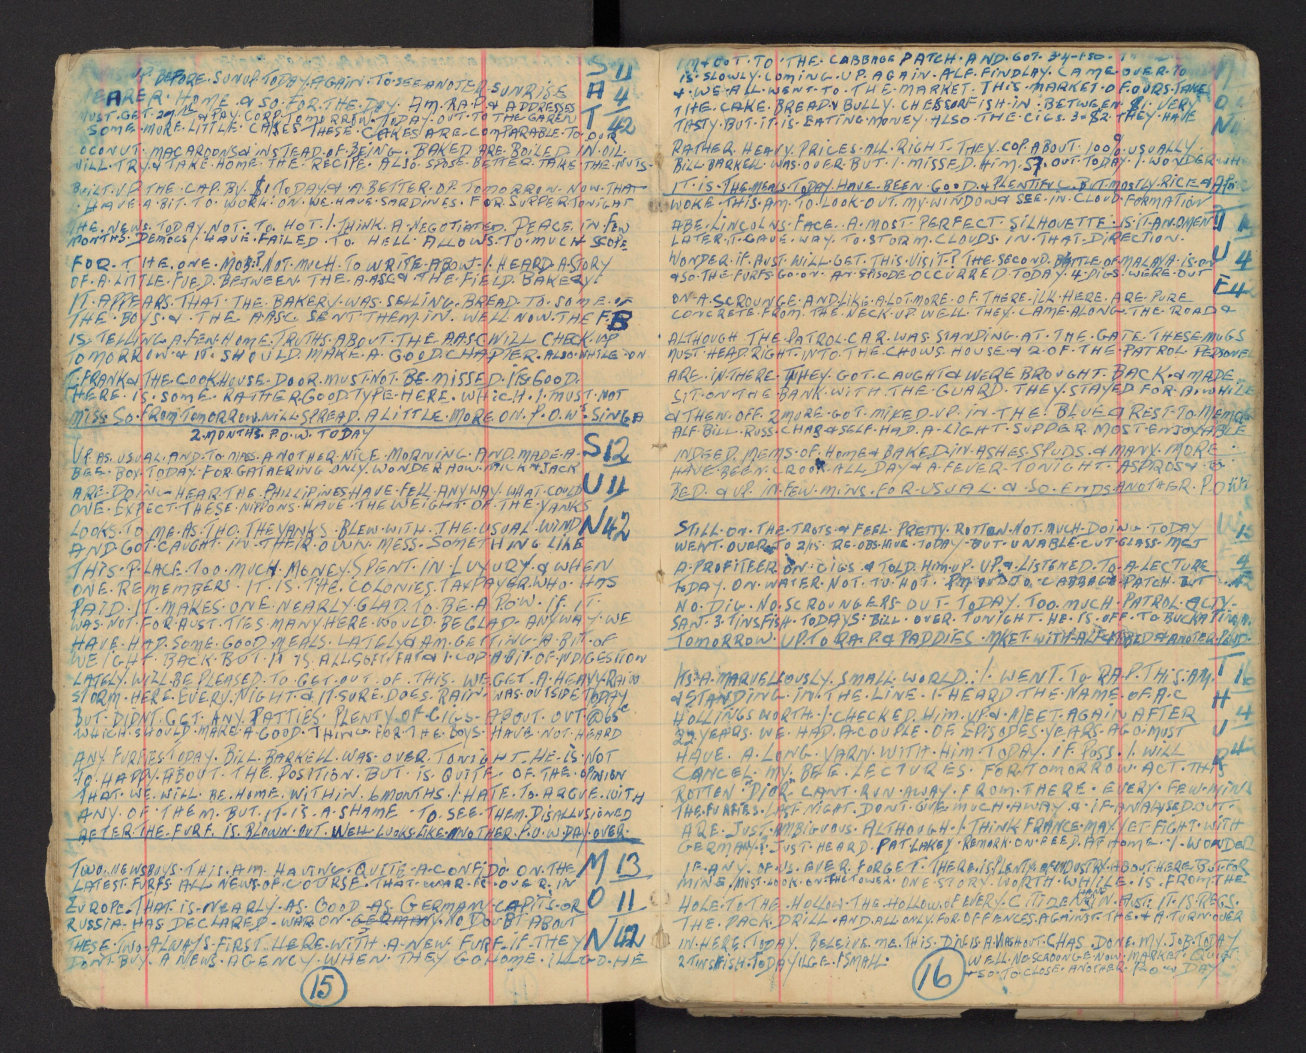 UP BEFORE SUNUP TODAY AGAIN TO SEE ANOTER SUNRISE
NEARER HOME & SO FOR THE DAY. AM R.A.P. & ADDRESSES
MUST GET & PAY CORP. TOMORROW TODAY OUT TO THE GARDEN
SOME MORE LITTLE CAKES THESE CAKES ARE COMPARABLE TO OUR
COCONUT MACAROONS & INSTEAD OF BEING BAKED ARE BOILED IN OIL
WILL TRY & TAKE HOME THE RECIPE ALSO SPOSE BETTER TAKE THE NUTS
BUILT UP THE CAP BY $1 TODAY & A BETTER OP TOMORROW NOW THAT
I HAVE A BIT TO WORK ON WE HAVE SARDINES FOR SUPPER TONIGHT
THE NEWS TODAY NOT TO HOT I THINK A NEGOTIATED PEACE IN FEW
MONTHS DEMOCS HAVE FAILED TO HELL ALLOWS TO MUCH SCOPE
FOR THE ONE MOB? NOT MUCH TO WRITE ABOUT I HEARD A STORY
OF A LITTLE FUED BETWEEN THE AASC & THE FIELD BAKERY
IT APPEARS THAT THE BAKERY WAS SELLING BREAD TO SOME OF
THE BOYS & THE AASC SENT THEM IN WELL NOW THE F B
IS TELLING A FEW HOME TRUTHS ABOUT THE AASC WILL CHECK UP
TOMORROW & IT SHOULD MAKE A GOOD CHAPTER ALSO WHILE ON
C FRANK & THE COOKHOUSE DOOR MUST NOT BE MISSED ITS GOOD
THERE IS SOME RATHER GOOD TYPE HERE WHICH I MUST NOT
MISS SO FROM TOMORROW WILL SPREAD A LITTLE MORE ON P.O.W'S SINGA
S 11
A 4
T 42
2 MONTHS P.O.W. TODAY
UP AS USUAL AND TO PASS ANOTHER NICE MORNING AND MADE A
BEE BOX TODAY FOR GATHERING ONLY WONDER HOW MICK & JACK
ARE DOING HEAR THE PHILLIPINES HAVE FELL ANYWAY WHAT COULD
ONE EXPECT THESE NIPPONS HAVE THE WEIGHT OF THE YANKS
LOOKS TO ME AS THO THE YANKS BLEW WITH THE USUAL WIND
AND GOT CAUGHT IN THEIR OWN MESS SOMETHING LIKE
THIS PLACE TOO MUCH MONEY SPENT IN LUXURY & WHEN
ONE REMEMBERS IT IS THE COLONIES TAXPAYER WHO HAS
PAID IT MAKES ONE NEARLY GLAD TO BE A P.O.W. IF IT
WAS NOT FOR AUST TIES MANY HERE WOULD BE GLAD ANYWAY WE
HAVE HAD SOME GOOD MEALS LATELY & AM GETTING A BIT OF
WEIGHT BACK BUT IT IS ALL SOFT FAT & I COP A BIT OF INDIGESTION
LATELY WILL BE PLEASED TO GET OUT OF THIS WE GET A HEAVY RAIN
STORM HERE EVERY NIGHT & IT SURE DOES RAIN WAS OUTSIDE TODAY
BUT DIDNT GET ANY PATTIES PLENTY OF CIGS ABOUT OUT @ 65c
WHICH SHOULD MAKE A GOOD THING FOR THE BOYS HAVE NOT HEARD
ANY FURFIES TODAY BILL BARKELL WAS OVER TONIGHT HE IS NOT
TO HAPPY ABOUT THE POSITION BUT IS QUITE OF THE OPINION
THAT WE WILL BE HOME WITHIN 6 MONTHS I HATE TO ARGUE WITH
ANY OF THEM BUT IT IS A SHAME TO SEE THEM DISALLUSIONED
AFTER THE FURF IS BLOWN OUT WELL LOOKS LIKE ANOTHER P.O.W DAY OVER
S 12
U 11
N 42
TWO NEWSBUYS THIS AM HAVING QUITE A CONFIDO ON THE
LATEST FURFS ALL NEWS OF COURSE THAT WAR IS OVER IN
EUROPE THAT IS NEARLY AS GOOD AS GERMANY CAPITS OR
RUSSIA HAS DECLARED WAR ON GERMANY NO DOUBT ABOUT
THESE TWO ALWAYS FIRST HERE WITH A NEW FURF IF THEY
DONT BUY A NEWS AGENCY WHEN THEY GO HOME ILL GO HE
M 13
O 11
N 42
15
IM & GOT TO THE CABBAGE PATCH AND GOT 3·4
IS SLOWLY COMING UP AGAIN ALF FINDLAY CAME OVER TO
& WE ALL WENT TO THE MARKET THIS MARKET OF OURS TAKES
THE CAKE BREAD & BULLY CHEESE OR FISH IN BETWEEN $1 VERY
TASTY BUT IT IS EATING MONEY ALSO THE CIGS 3 @ $2 THEY HAVE
RATHER HEAVY PRICES ALL RIGHT THEY COP ABOUT 100% USUALLY
BILL BARKELL WAS OVER BUT I MISSED HIM OUT TODAY I WONDER WH
IT IS THE MEALS TODAY HAVE BEEN GOOD & PLENTIFUL BUT MOSTLY RICE & A
WOKE THIS AM TO LOOK OUT MY WINDOW & SEE IN CLOUD FORMATION
ABE LINCOLNS FACE A MOST PERFECT SILHOUETTE IS IT AN OMEN
LATER IT GAVE WAY TO STORM CLOUDS IN THAT DIRECTION
WONDER IF AUST WILL GET THIS VISIT? THE SECOND BATTLE OF MALAYA IS ON
& SO THE FURFS GO ON AN EPISODE OCCURRED TODAY 4 DIGS WERE OUT
ON A SCROUNGE AND LIKE A LOT MORE OF THERE ILK HERE ARE PURE
CONCRETE FROM THE NECK UP WELL THEY CAME ALONG THE ROAD &
ALTHOUGH THE PATROL CAR WAS STANDING AT THE GATE THESE MUGS
MUST HEAD RIGHT INTO THE CHOWS HOUSE & 2 OF THE PATROL PERSONEL
ARE IN THERE THEY GOT CAUGHT & WERE BROUGHT BACK & MADE
SIT ON THE BANK WITH THE GUARD THEY STAYED FOR A WHILE
& THEN OFF 2 MORE GOT MIXED UP IN THE BLUE & REST TO MEMORY
ALF BILL RUSS CHAS & SELF HAD A LIGHT SUPPER MOST ENJOYABLE
INDEED MEMS OF HOME & BAKED IN ASHES SPUDS & MANY MORE
HAVE BEEN CROOK ALL DAY & A FEVER TONIGHT ASPROS & TO
BED & UP IN FEW MINS FOR USUAL & SO ENDS ANOTHER P.O.W
T 1
U 4
E 42
STILL ON THE TROTS & FEEL PRETTY ROTTEN NOT MUCH DOING TODAY
WENT OVER TO 2/15 RE OBS HIVE TODAY BUT UNABLE CUT GLASS MET
A PROFITEER ON CIGS & TOLD HIM UP UP & LISTENED TO A LECTURE
TODAY ON WATER NOT TO HOT PM OUT TO CABBAGE PATCH BUT
NO DIG NO SCROUNGERS OUT TODAY TOO MUCH PATROL ACTY
SANT 3 TINS FISH TODAYS BILL OVER TONIGHT HE IS OFF TO BUCKATIMA
TOMORROW UP TO R.A.P. & PADDIES MKET WITH ALF & BED & ANOTHER P.O.W.D
W 15
4
42
ITS A MARVELLOUSLY SMALL WORLD I WENT TO R.A.P. THIS AM
& STANDING IN THE LINE I HEARD THE NAME OF A.C
HOLLINGSWORTH I CHECKED HIM UP & MEET AGAIN AFTER
22 YEARS WE HAD A COUPLE OF EPISODES YEARS AGO MUST
HAVE A LONG YARN WITH HIM TODAY IF POSS I WILL
CANCEL MY BEE LECTURES FOR TOMORROW ACT THIS
ROTTEN "DIOR" CANT RUN AWAY FROM THERE EVERY FEW MINS
THE FURFIES LAST NIGHT DONT GIVE MUCH AWAY & IF ANALYSED OUT
ARE JUST AMBIGUOUS ALTHOUGH I THINK FRANCE MAY YET FIGHT WITH
GERMANY JUST HEARD PAT LAKEY REMARK ON FEED AT HOME I WONDER
IF ANY OF US EVER FORGET THERE IS PLENTY OF INDUSTRY ABOUT HERE BUT FOR
MINE MUST LOOK ON THE TOWER ONE STORY WORTH WHILE IS FROM THE
HOLE TO THE HOLLOW THE HOLLOW OF EVERY CITIDEN HAND IN AUST IT IS REGS
THE PACK DRILL AND ALL ONLY FOR OFFENCES AGAINST THE & A TURNOVER
IN HERE TODAY BELEIVE ME THIS DIN IS A WASHOUT CHAS DONE MY JOB TODAY
2 TINS FISH TODAY 1 LGE 1 SMALL
WELL NO SCROUNGE NOW MARKET QUIET
& SO TO CLOSE ANOTHER P.O.W DAY
T 16
H
U 4
R 4
S
16